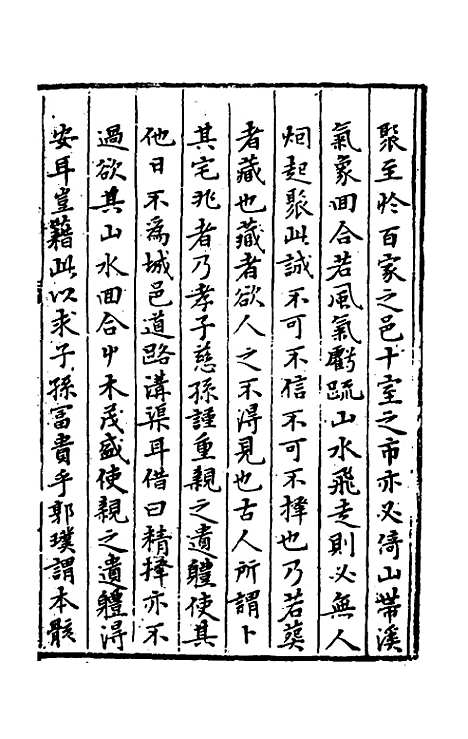 聚至於百家之邑十室之市亦必倚山帶溪
氣象回合若風氣虧疏山水飛走則必無人
烟起聚此誠不可不信不可不擇也乃若葬
者藏也藏者欲人之不得見也古人所謂卜
其宅兆者乃孝子慈孫謹重親之遺軆使其
他日不為城邑道路溝渠耳借曰精擇亦不
過欲其山水回合屮木茂盛使親之遺軆得
安耳豈藉此以求子孫冨貴乎郭璞謂本骸